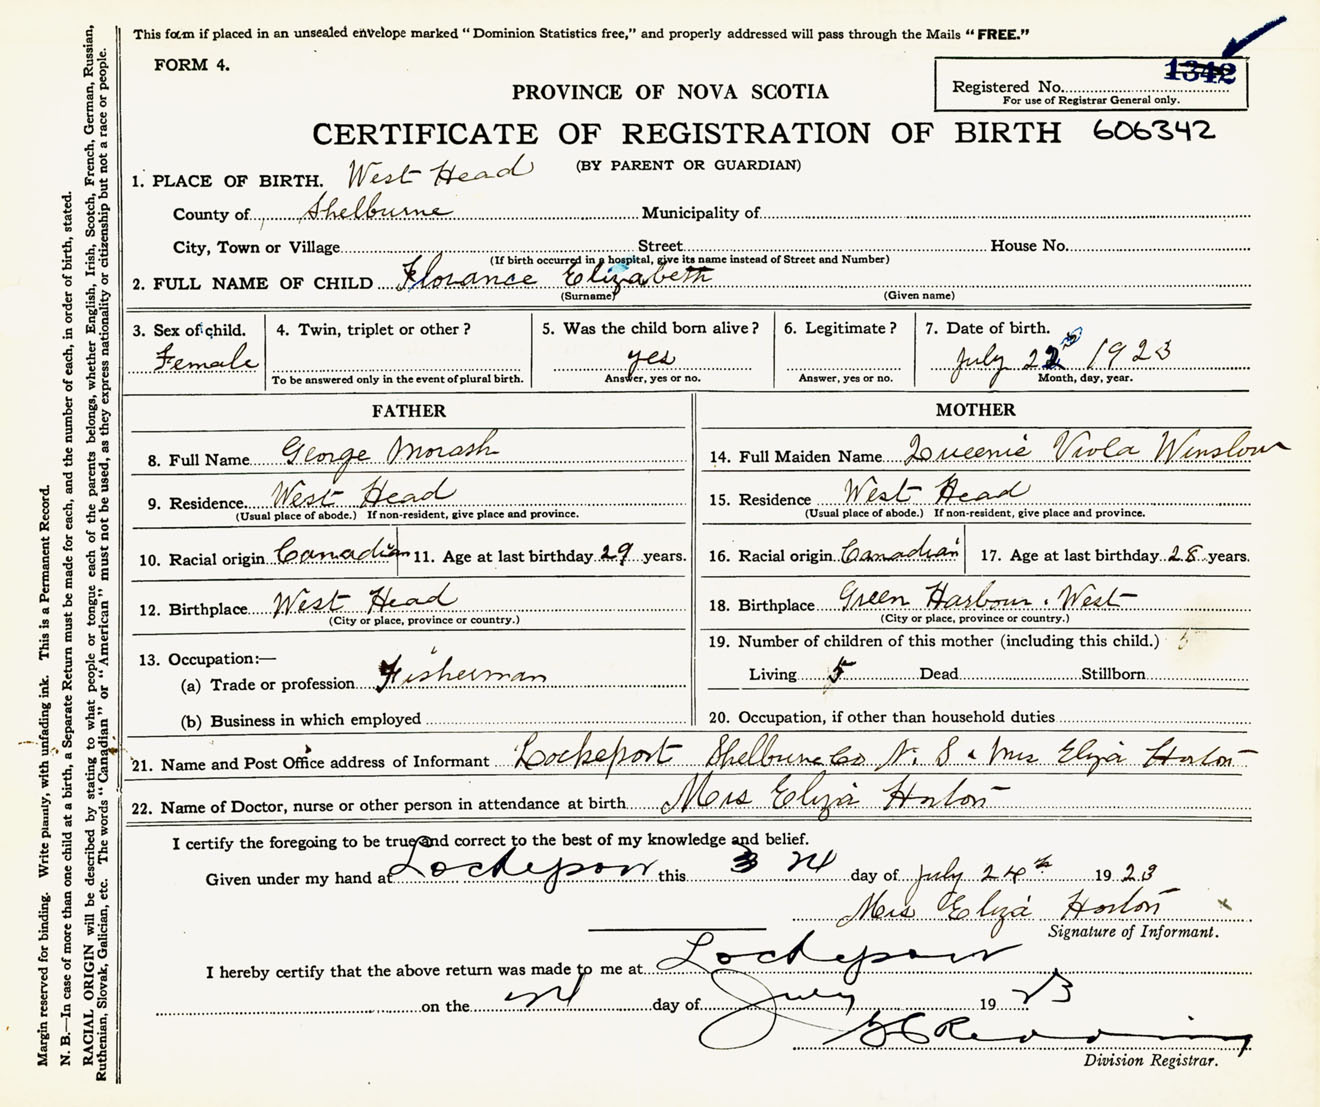 This form if placed in an unsealed envelope marked "Dominion Statistics free," and properly addressed will pass through the Mails "FREE."
FORM 4.
1342
Registered No.
For use of Registrar General only.
PROVINCE OF NOVA SCOTIA
CERTIFICATE OF REGISTRATION OF BIRTH 606342
(BY PARENT OR GUARDIAN)
1. PLACE OF BIRTH. West Head
County of Shelburne Municipality of
City, Town or Village Street House No.
(If birth occurred in a hospital, give its name instead of Street and Number)
2. FULL NAME OF CHILD Florance Elizabeth
(Surname) (Given name)
3. Sex of child. 4. Twin, triplet or other? 5. Was the child born alive? 6. Legitimate? 7. Date of birth.
Female yes July 22 1923
To be answered only in the event of plural birth. Answer, yes or no. Answer, yes or no. Month, day, year.
FATHER
8. Full Name George Morash
9. Residence West Head
(Usual place of abode.) If non-resident, give place and province.
10. Racial origin Canadian 11. Age at last birthday 29 years.
12. Birthplace West Head
(City or place, province or country.)
13. Occupation:—
(a) Trade or profession Fisherman
(b) Business in which employed
MOTHER
14. Full Maiden Name Queenie Viola Winslow
15. Residence West Head
(Usual place of abode.) If non-resident, give place and province.
16. Racial origin Canadian 17. Age at last birthday 28 years.
18. Birthplace Green Harbour. West
(City or place, province or country.)
19. Number of children of this mother (including this child.) 5
Living 5 Dead Stillborn
20. Occupation, if other than household duties
21. Name and Post Office address of Informant Lockeport Shelburne Co N. S. Mrs Eliza Horton
22. Name of Doctor, nurse or other person in attendance at birth Mrs Eliza Horton
I certify the foregoing to be true and correct to the best of my knowledge and belief.
Given under my hand at Lockeport this 24 day of July 24th 1923
Mrs Eliza Horton
Signature of Informant.
I hereby certify that the above return was made to me at Lockeport
on the 24 day of July 1923
Division Registrar.
Margin reserved for binding. Write plainly, with unfading ink. This is a Permanent Record.
N. B.—In case of more than one child at a birth, a Separate Return must be made for each, and the number of each, in order of birth, stated.
RACIAL ORIGIN will be described by stating to what people or tongue each of the parents belongs, whether English, Irish, Scotch, French, German, Russian,
Ruthenian, Slovak, Galician, etc. The words "Canadian" or "American" must not be used, as they express nationality or citizenship but not a race or people.